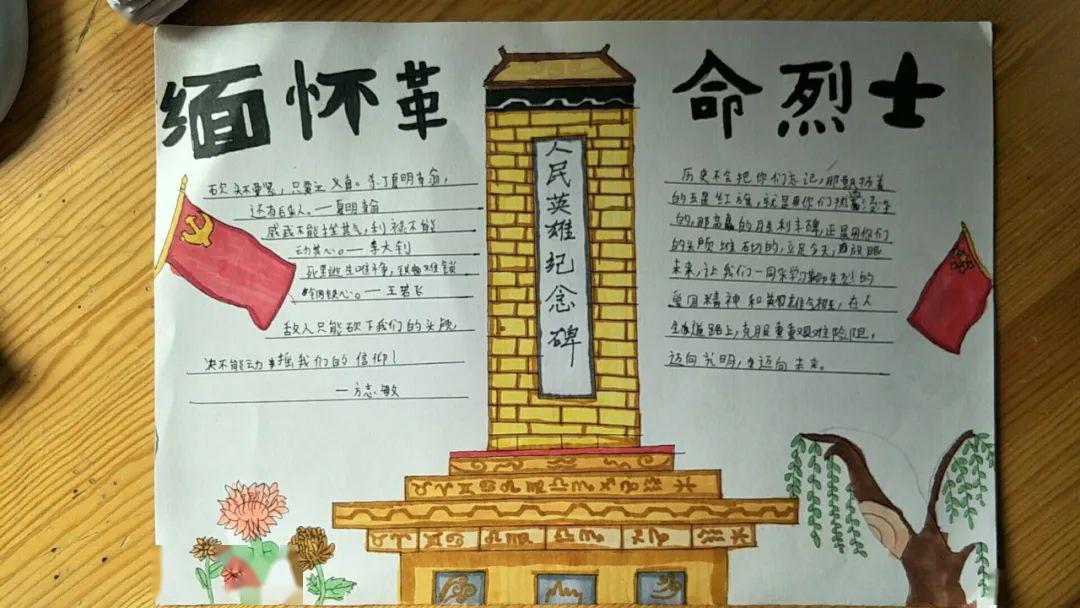 缅怀革命烈士
砍头不要紧，只要主义真。杀了夏明翰，
还有后来人。——夏明翰
威武不能挫其气，利禄不能
动其心。——李大钊
死里逃生唯斗争，铁窗难锁
钢铁心。——王若飞
敌人只能砍下我们的头颅，
决不能动摇我们的信仰！
——方志敏
人民英雄纪念碑
历史不会把你们忘记，那飘扬着
的五星红旗，就是用你们
的，那高矗的胜利丰碑，正是用你们
的头颅堆砌的，立足今天，放眼
未来，让我们一同来学习先烈的
爱国精神和英雄气概，在人
生道路上，克服重重艰难险阻，
迈向光明，迈向未来。